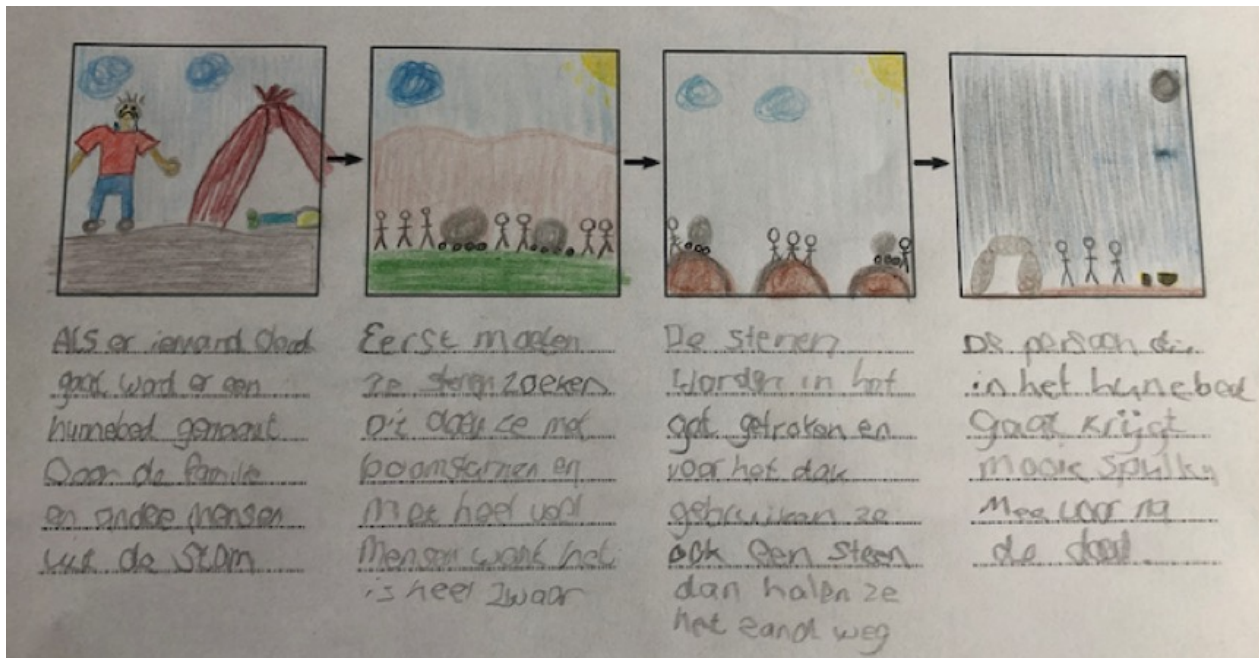 Als er iemand dood
gaat word er een
hunnebed gemaakt
Door de familie
en andere mensen
uit de stam
Eerst moeten
ze stenen zoeken
Dit doen ze met
boomstamen en
met heel veel
mensen want het
is heel zwaar
De stenen
worden in het
gat getroken en
voor het dak
gebruiken ze
ook een steen
dan halen ze
het zand weg
De persoon die
in het hunebed
gaat krijgt
mooie spulken
mee voor na
de dood.